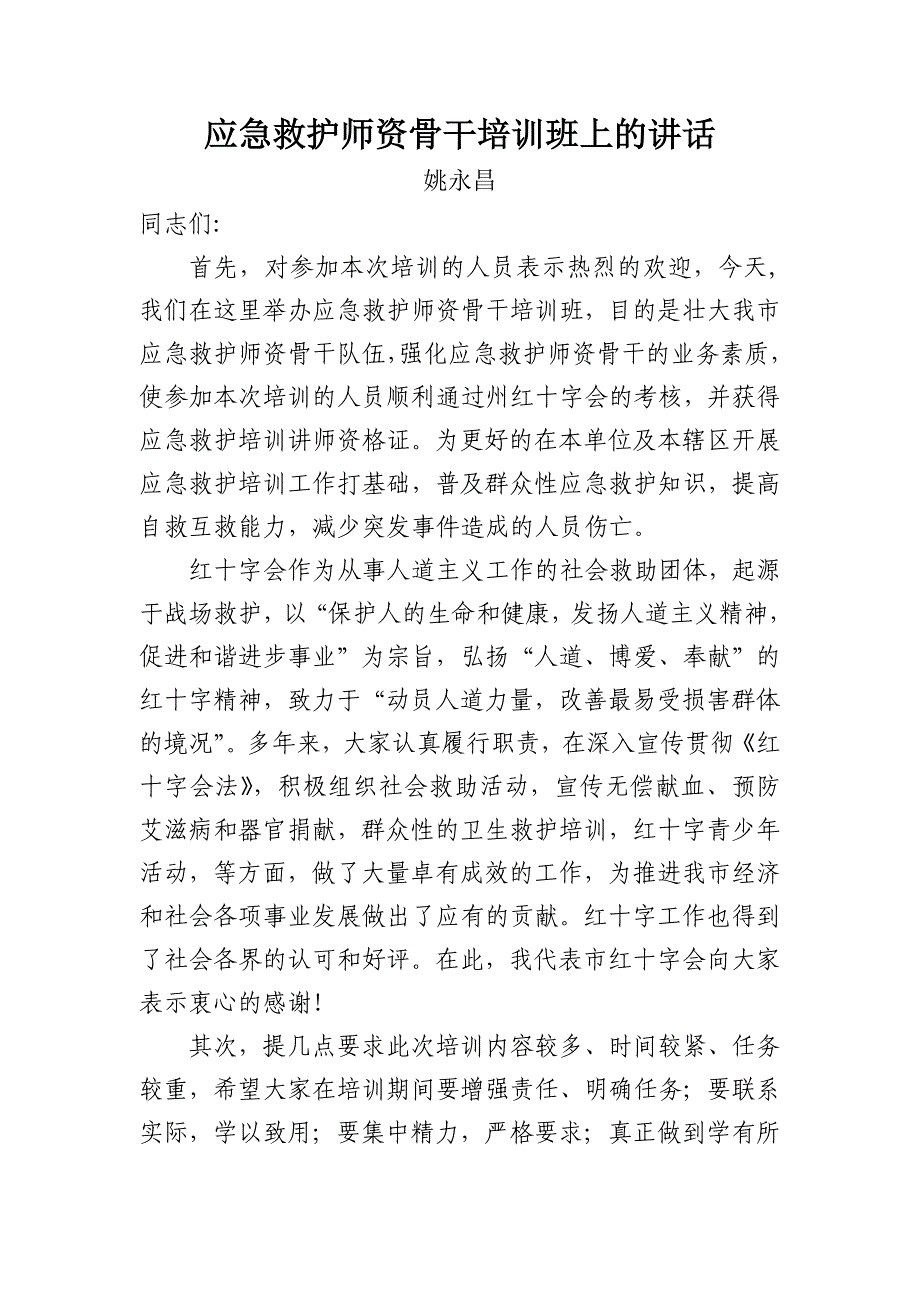 应急救护师资骨干培训班上的讲话
姚永昌
同志们:
首先，对参加本次培训的人员表示热烈的欢迎，今天，
我们在这里举办应急救护师资骨干培训班，目的是壮大我市
应急救护师资骨干队伍,强化应急救护师资骨干的业务素质，
使参加本次培训的人员顺利通过州红十字会的考核，并获得
应急救护培训讲师资格证。为更好的在本单位及本辖区开展
应急救护培训工作打基础，普及群众性应急救护知识，提高
自救互救能力，减少突发事件造成的人员伤亡。
红十字会作为从事人道主义工作的社会救助团体，起源
于战场救护，以“保护人的生命和健康，发扬人道主义精神，
促进和谐进步事业”为宗旨，弘扬“人道、博爱、奉献”的
红十字精神，致力于“动员人道力量，改善最易受损害群体
的境况”。多年来，大家认真履行职责，在深入宣传贯彻《红
十字会法》，积极组织社会救助活动，宣传无偿献血、预防
艾滋病和器官捐献，群众性的卫生救护培训，红十字青少年
活动，等方面，做了大量卓有成效的工作，为推进我市经济
和社会各项事业发展做出了应有的贡献。红十字工作也得到
了社会各界的认可和好评。在此，我代表市红十字会向大家
表示衷心的感谢!
其次，提几点要求此次培训内容较多、时间较紧、任务
较重，希望大家在培训期间要增强责任、明确任务；要联系
实际，学以致用；要集中精力，严格要求；真正做到学有所